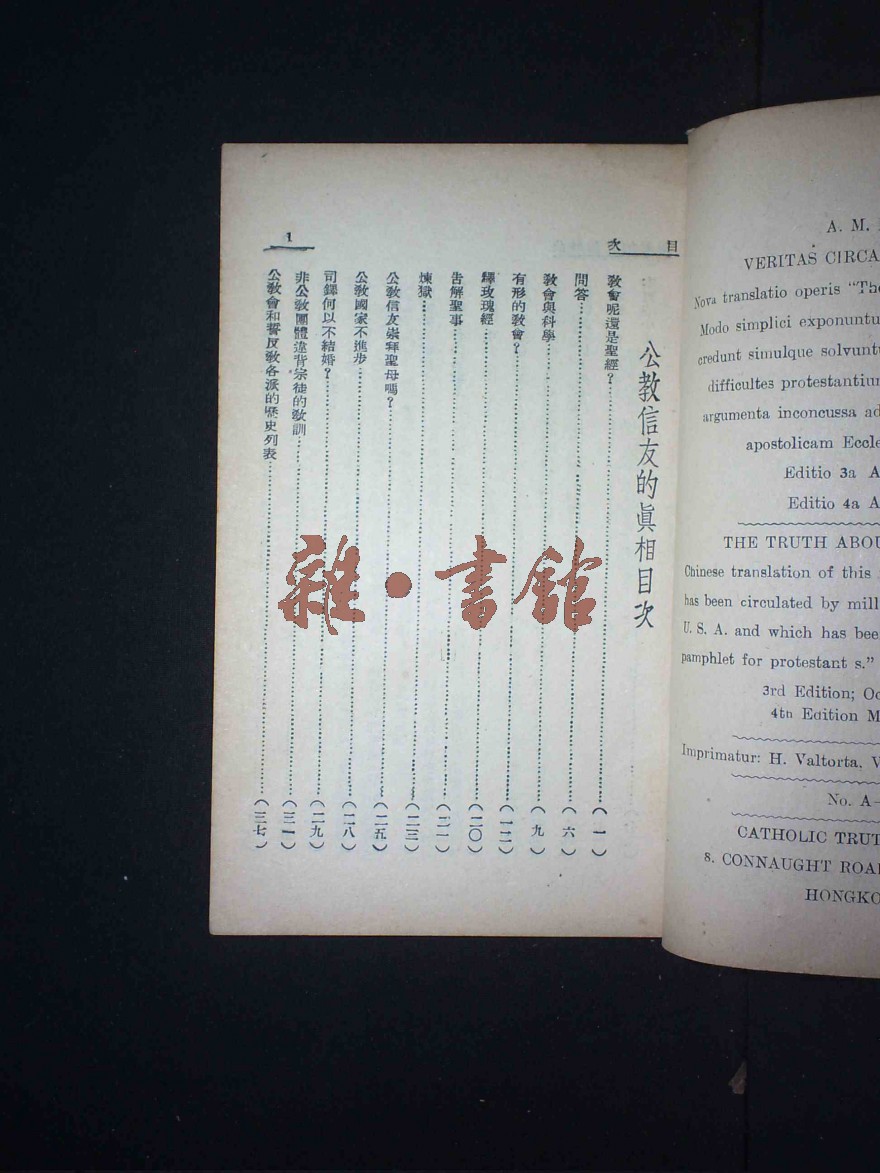 目次
1
公教信友的眞相目次
教會呢還是聖經?(一)
問答(六)
教會與科學(九)
有形的教會?(一二)
釋玫瑰經(二〇)
告解聖事(二一)
煉獄(二三)
公教信友崇拜聖母嗎?(二五)
公教國家不進步(二八)
司鐸何以不結婚?(二九)
非公教團體違背宗徒的教訓(三一)
公教會和誓反教各派的歷史列表(三七)
雜・書館
A. M.
VERITAS CIRCA
Nova translatio operis "The
Modo simplici exponuntu
credunt simulque solvuntu
difficultes protestantium
argumenta inconcussa ad
apostolicam Eccle
Editio 3a A
Editio 4a A
THE TRUTH ABOU
Chinese translation of this
has been circulated by mill
U. S. A. and which has bee
pamphlet for protestant s."
3rd Edition; Oc
4th Edition M
Imprimatur: H. Valtorta. V
No. A-
CATHOLIC TRUT
8. CONNAUGHT ROA
HONGKO